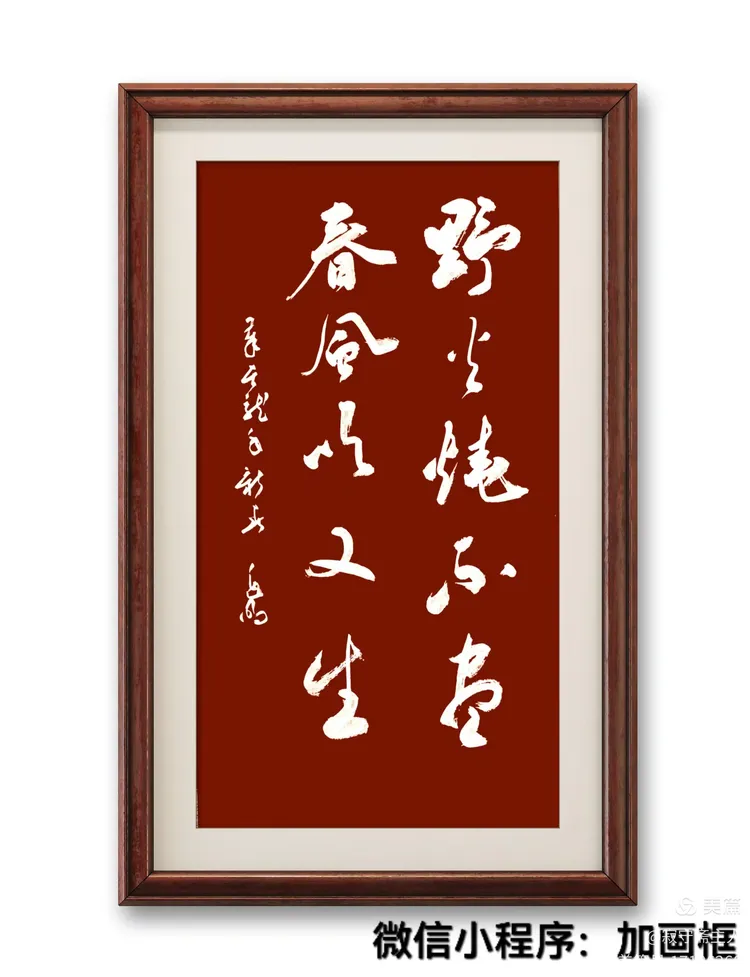 野火烧不尽
春风吹又生
龙年新春
美篇
微信小程序：加画框